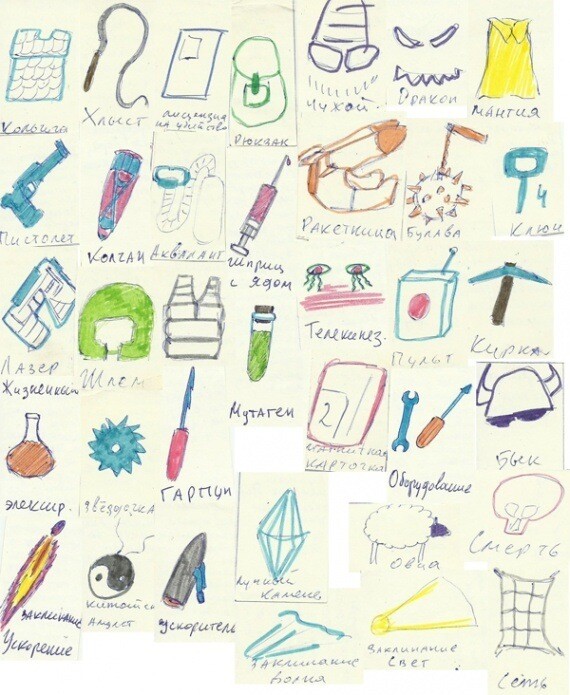 Кольчуга
Хлыст
лицензия
на убийство
Рюкзак
Чужой.
Дракон
мантия
Пистолет
Колчан
Акваланг
Шприц
с ядом
Ракетница
Булава
4
Ключ
Лазер
Шлем
Мутаген
Телекинез.
Пульт
Кирка
Жизненный
элексир.
звёздочка
Гарпун
21
магнитная
карточка
Оборудование
Бык
заклинание
Ускорение
Амулет
ускоритель
Лунный
камень
Овца
Смерть
заклинание
волна
заклинание
Свет
Сеть